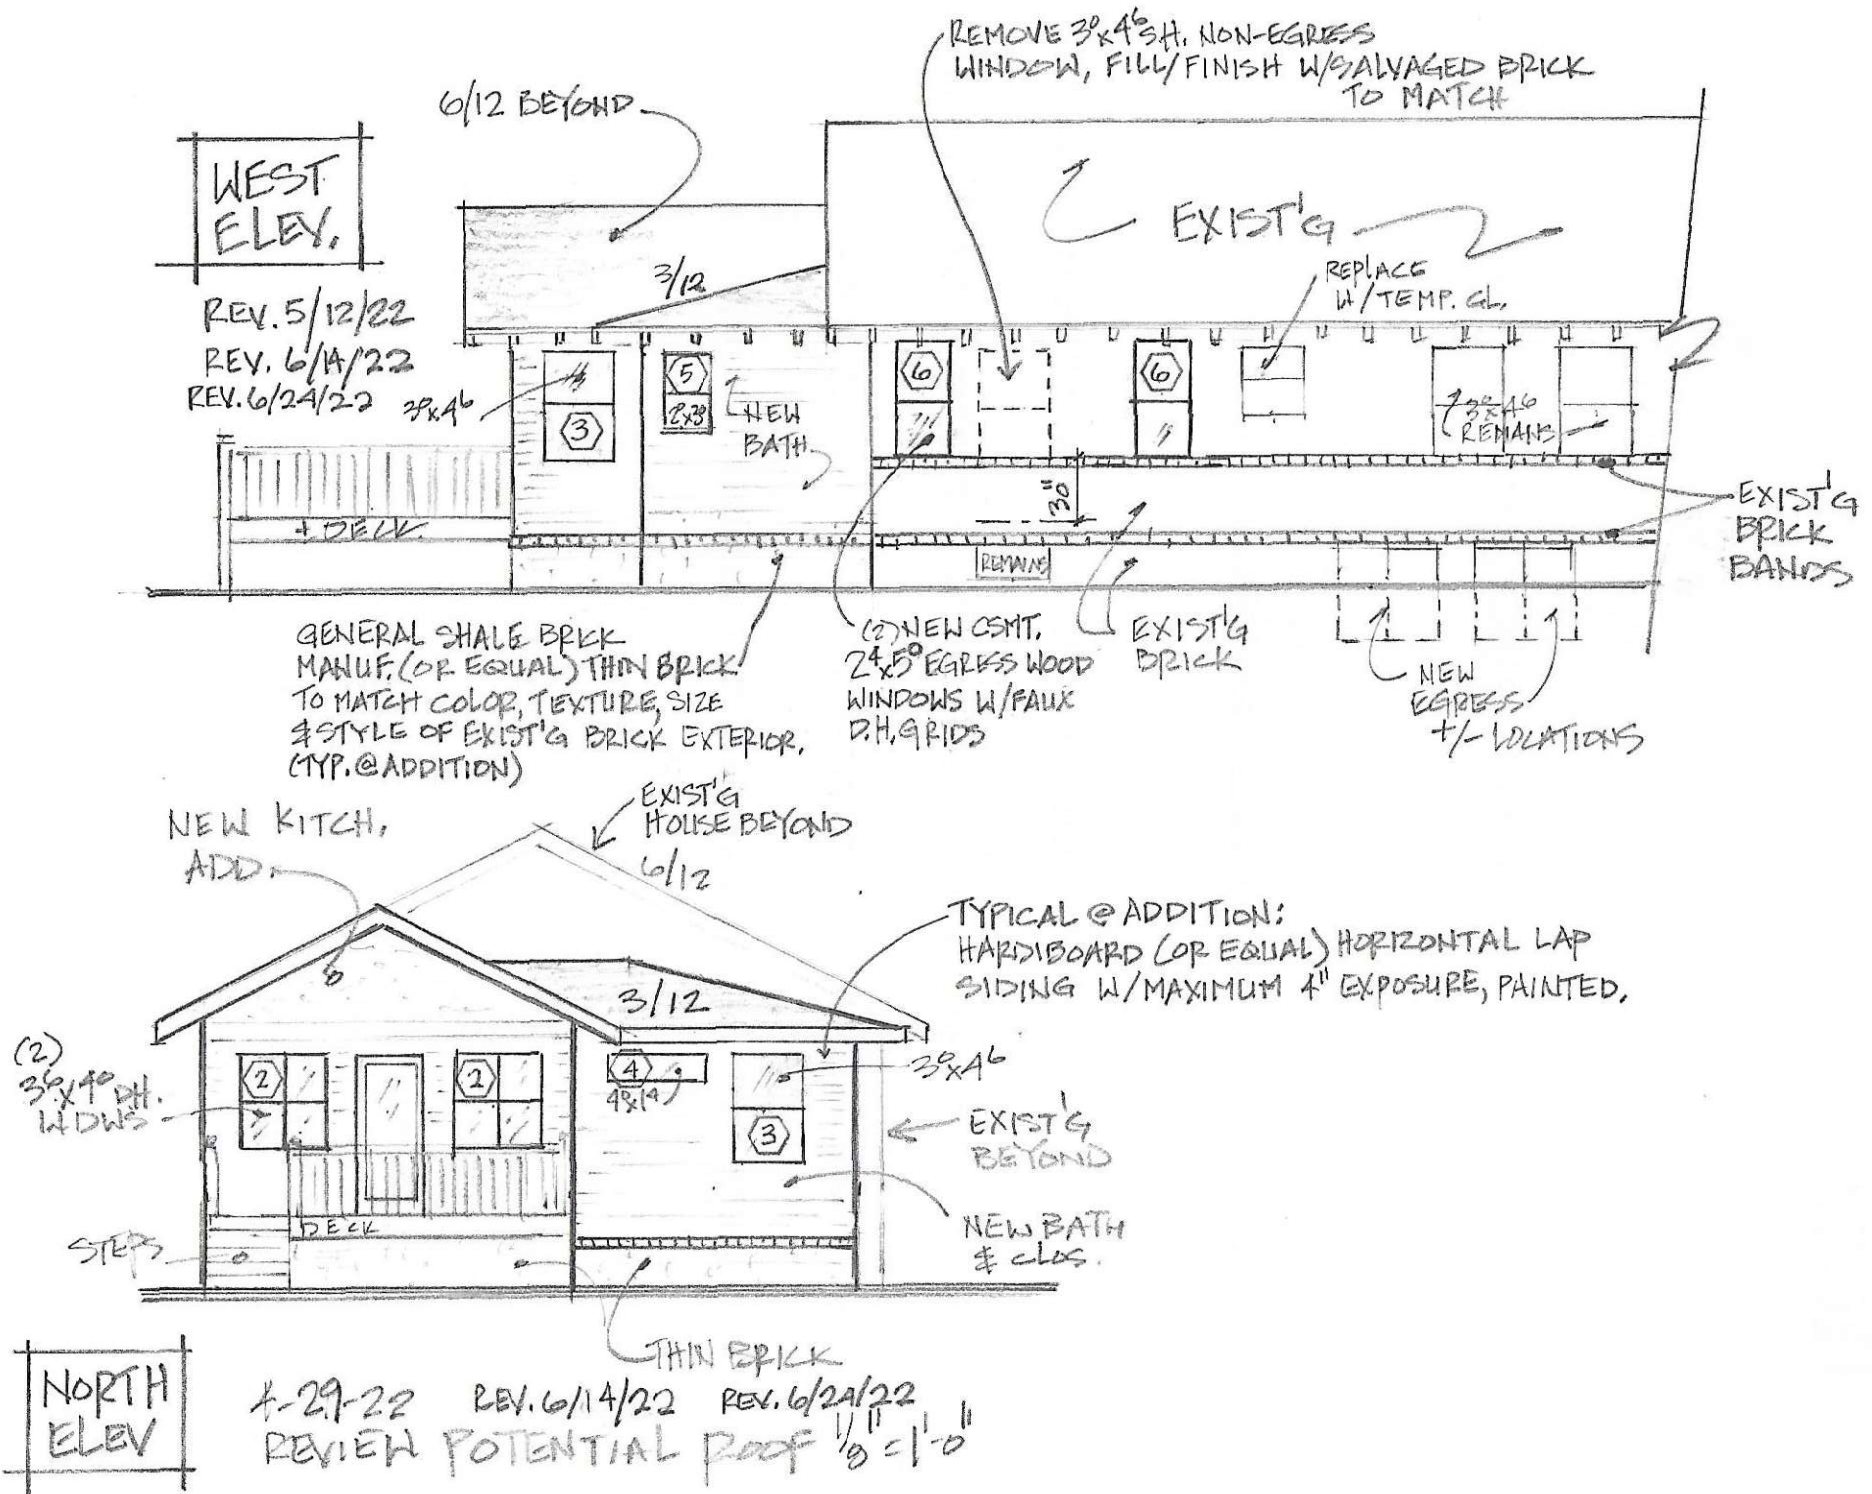 REMOVE 3⁰x4⁶ S.H. NON-EGRESS
WINDOW, FILL/FINISH W/SALVAGED BRICK
TO MATCH
6/12 BEYOND
WEST
ELEV.
EXIST'G
3/12
REPLACE
W/TEMP. GL.
REV. 5/12/22
REV. 6/14/22
REV. 6/24/22
3⁰x4⁶
3
5
2⁰x3⁰
NEW
BATH
6
6
3⁰x4⁶
REMANS
30"
+ DECK
REMAINS
EXIST'G
BRICK
BANDS
GENERAL SHALE BRICK
MANUF. (OR EQUAL) THIN BRICK
TO MATCH COLOR, TEXTURE, SIZE
& STYLE OF EXIST'G BRICK EXTERIOR.
(TYP. @ ADDITION)
(2) NEW CSMT.
2⁴x5⁰ EGRESS WOOD
WINDOWS W/FAUX
D.H. GRIDS
EXIST'G
BRICK
NEW
EGRESS
+/- LOCATIONS
NEW KITCH.
ADD.
EXIST'G
HOUSE BEYOND
6/12
TYPICAL @ ADDITION:
HARDIBOARD (OR EQUAL) HORIZONTAL LAP
SIDING W/MAXIMUM 4" EXPOSURE, PAINTED.
3/12
(2)
3⁶x4⁰ DH.
WDWS
2
2
4
3
3⁰x4⁶
EXIST'G
BEYOND
DECK
STEPS
NEW BATH
& CLOS.
THIN BRICK
NORTH
ELEV
4-29-22 REV. 6/14/22 REV. 6/24/22
REVIEW POTENTIAL ROOF 1/8" = 1'-0"